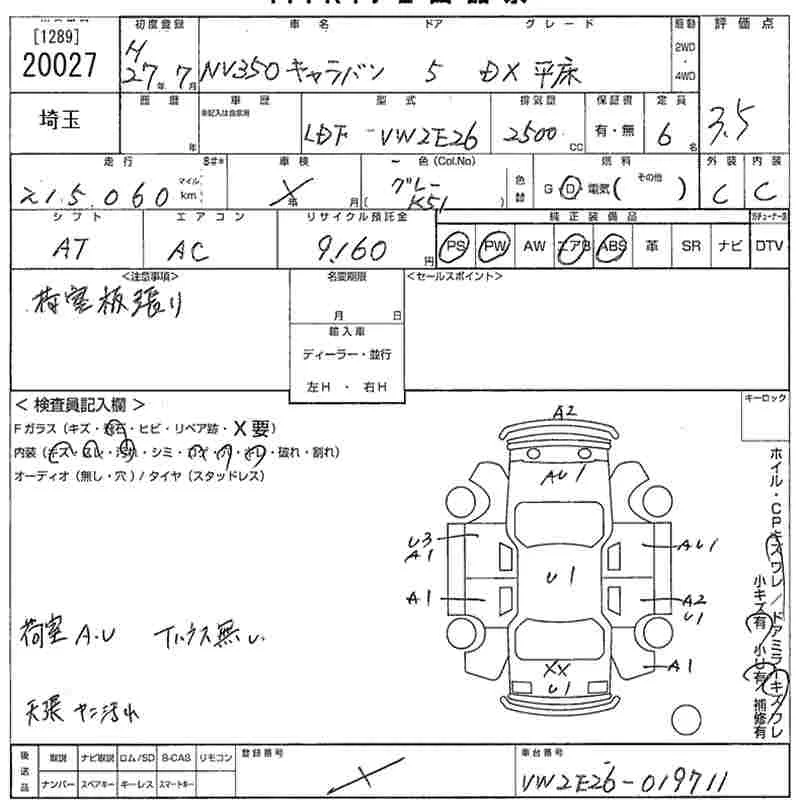 [1289]
20027
初度登録 車名 ドア グレード 駆動 評価点
H 27年 7月 NV350 キャラバン 5 DX 平床 2WD・4WD
埼玉
車歴 型式 排気量 保証書 定員
年 ※記入は自家用 LDF-VW2E26 2500cc 有・無 6名 3.5
走行 車検 色(Col.No) 燃料 外装 内装
215,060 マイル km 年 月 グレー K51 色替 G D 電気( その他 ) C C
シフト エアコン リサイクル預託金 純正装備品
AT AC 9,160円 PS PW AW エアB ABS 革 SR ナビ DTV
<注意事項> 名変期限 <セールスポイント>
荷室板張り
月 日
輸入車
ディーラー・並行
左H・右H
<検査員記入欄> キーロック
Fガラス(キズ・飛石・ヒビ・リペア跡・X要)
内装(キズ・スレ・汚れ・シミ・コゲ・穴・キレ・破れ・割れ)
オーディオ(無し・穴)/タイヤ(スタッドレス)
A2
AU1
U3
A1
AU1
U1
A1
A2
U1
XX
U1
A1
ホイル・CPキズワレ/ドアミラーキズワレ
小キズ有/小U有/補修有
荷室 A.U Tハウス無し
天張 ヤニ汚れ
後送品 取説 ナビ取説 ロム/SD B-CAS リモコン 登録番号 車台番号
ナンバー スペアキー キーレス スマートキー VW2E26-019711